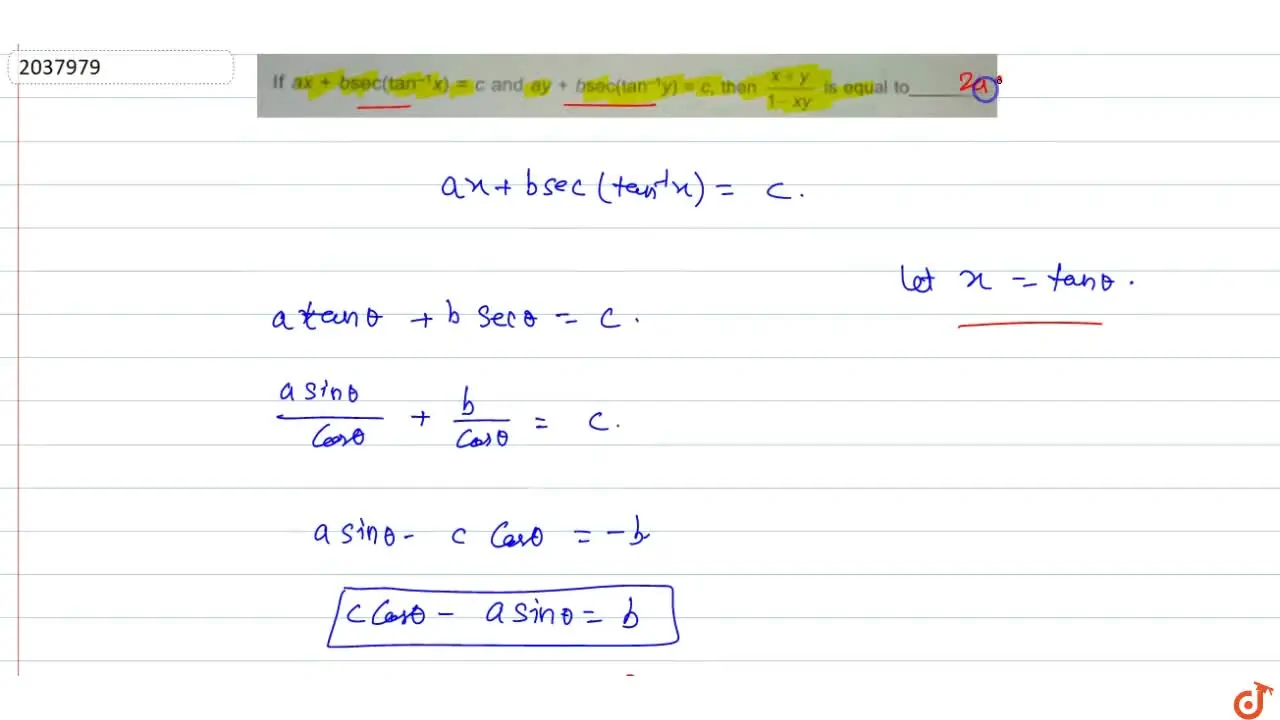 2037979
If ax + bsec(tan⁻¹x) = c and ay + bsec(tan⁻¹y) = c, then (x + y)/(1 − xy) is equal to______ 2a
ax + b sec (tan⁻¹x) = c.
let x = tanθ.
a tanθ + b secθ = c.
a sinθ/cosθ + b/cosθ = c.
a sinθ - c cosθ = -b
c cosθ - a sinθ = b